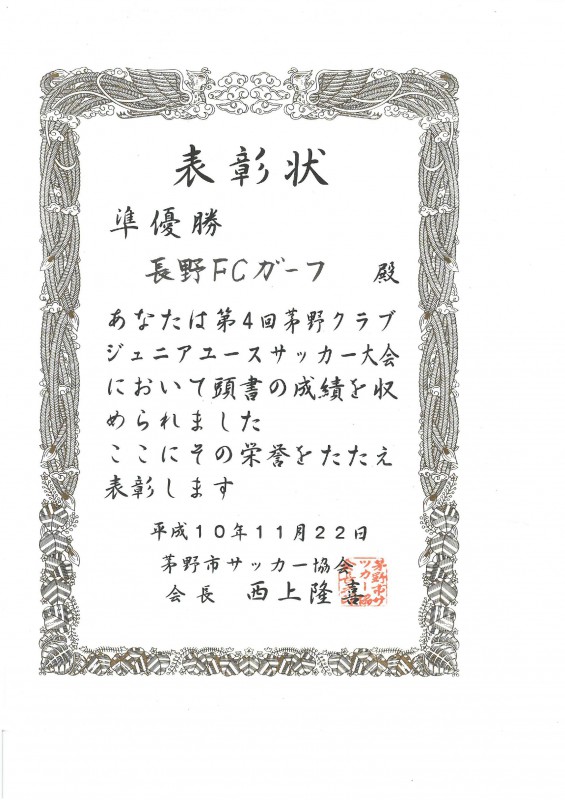 表彰状
準優勝
長野FCガーフ 殿
あなたは第4回茅野クラブ
ジュニアユースサッカー大会
において頭書の成績を収
められました
ここにその栄誉をたたえ
表彰します
平成10年11月22日
茅野市サッカー協会
会長 西上隆喜